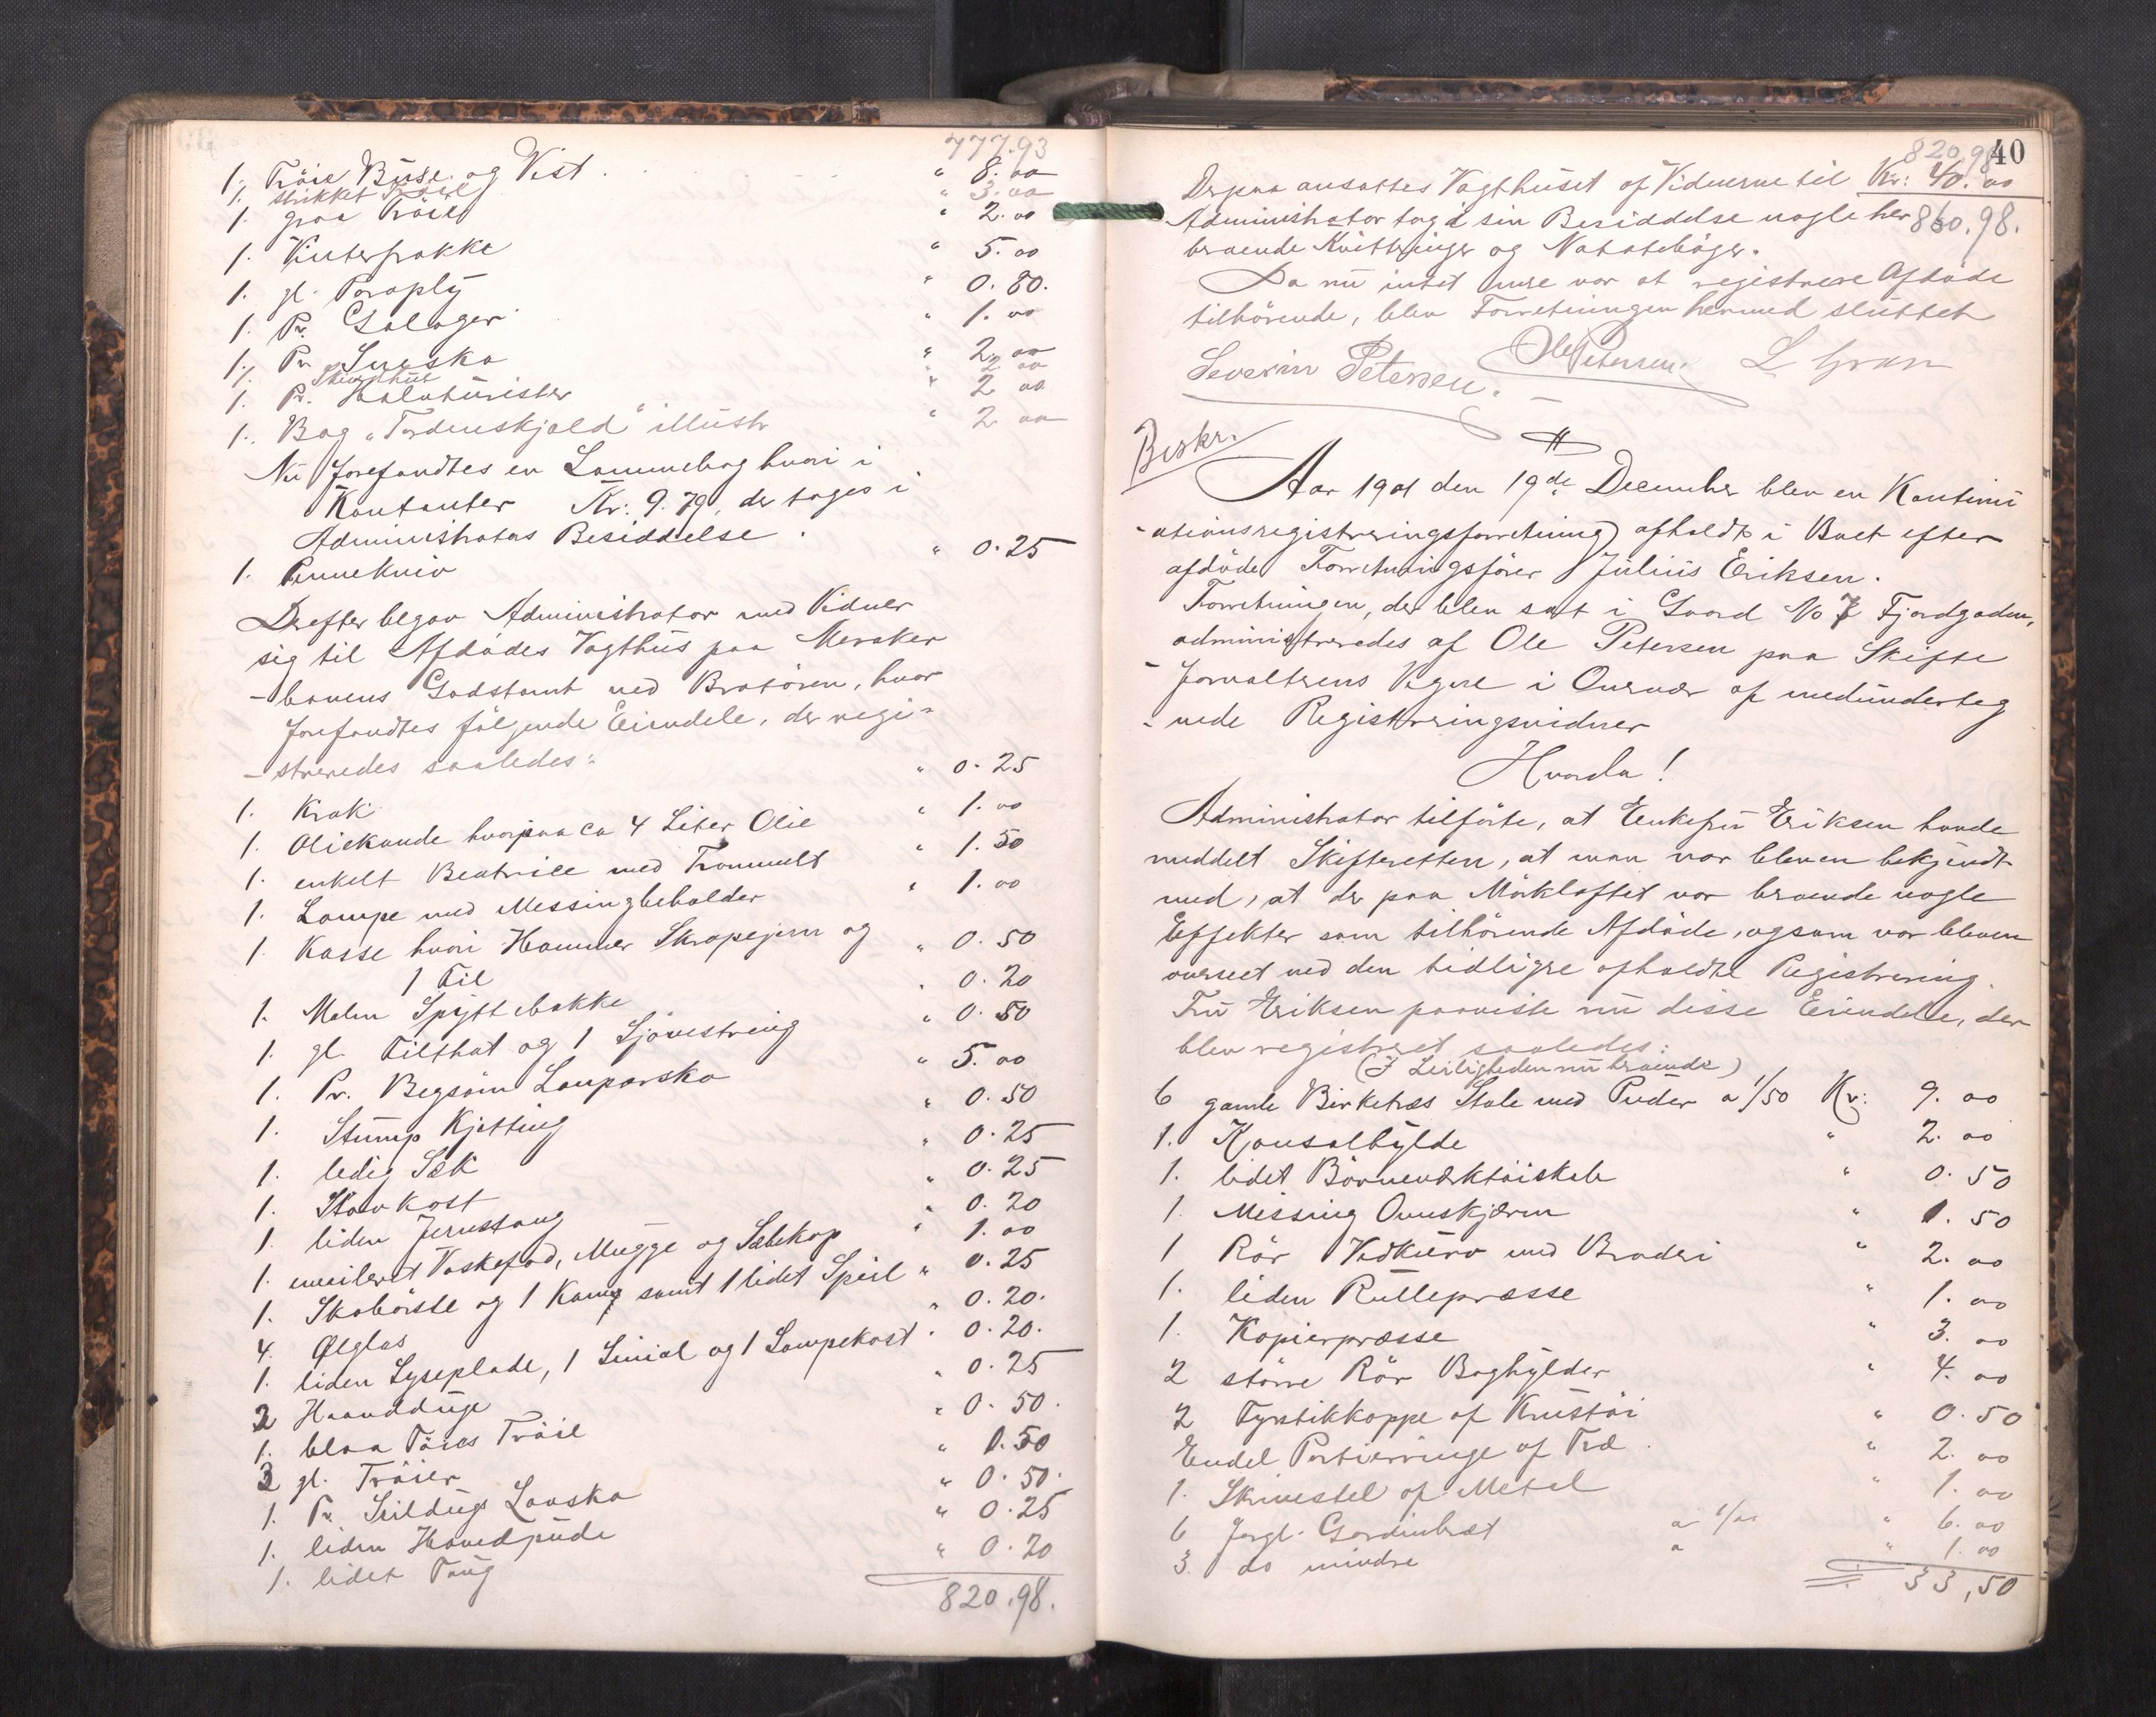 777.93
1. Tröie Buxe og Vest . " 8. 00
1. strikket Tröie " 3. 00
1. graa Tröie " 2. 00
1. Vinterfrakke " 5. 00
1. gl. Paraply " 0. 80.
1. Pr. Galoger " 1. 00
1. Pr. Snesko " 2. 00
1. Skindhue " 2. 00
1. Pr. Halvtürister " 2 00
1. Bog "Tordenskjold" illustr " 2. 00
Nu forefandtes en Lommebog hvori i
Kontanter Kr: 9.79, der toges i
Administrators Besiddelse .
1. Pennekniv " 0.25
Derefter begav Administrator med Vidner
sig til Afdödes Vagthus paa Meraker
-banens Godstomt ved Bratören, hvor
forefandtes fölgende Eiendele, der regi-
-streredes saaledes:
1. Krak " 0. 25
1. Oliekande hvorpaa ca 4 Liter Olie " 1. 00
1. enkelt med " 1. 50
1. Lampe med Messingbeholder " 1. 00
1. Kasse hvori Hammer Skrapejern og
1 Fil " 0. 50
1. Malm Spyttebakke " 0. 20
1. gl. Filthat og 1 " 0. 50
1. Pr. Begsöm Lauparsko " 5. 00
1. Stump Kjetting " 0. 50
1. ledig Sæk " 0. 25
1. Kost " 0. 25
1. liden Jernstang " 0. 20
1. emileret Vaskefad, Mugge og Sæbekop " 1. 00
1. Skobörste og 1 Kam samt 1 lidet Speil " 0. 25
4. Ølglas " 0. 20.
1. liden Lyseplade, 1 Linial og 1 Lampekost " 0. 20.
2 Haandduge " 0. 25
1. blaa Tröie " 0. 50.
3 gl. Tröier " 1. 50
1. Pr. Seildugs Lavsko " 0. 50.
1. liden Hovedpude " 0.25
1. lidet Taug " 0. 20
820.98.
820.98 40
Derpaa ansattes Vagthuset af Vidnerne til Kr: 40. 00
Administrator tog i sin Besiddelse nogle her 860.98.
beroende Kvitteringer og Notatsböger.
Da nu intet mere var at registrere Afdöde
tilhörende, blev Forretningen hermed sluttet
Severin Petersen. Ole Petersen. L Gran
Beskr.
Aar 1901 den 19de December blev en Kontinu
-ationsregistreringsforretning afholdt i Boet efter
afdöde Forretningsförer Julius Eriksen.
Forretningen, der blev sat i Gaard No 7 Fjordgaden,
administreredes af Ole Petersen paa Skifte
-forvalterens Vegne i Overvær af medunderteg
-nede Registreringsvidner
Hvorda!
Administrator tilförte, at Enkefru Eriksen havde
meddelt Skifteretten, at man var bleven bekjendt
med, at der paa Mörkloftet var beroende nogle
Effekter som tilhörende Afdöde, og som var bleven
overseet ved den tidligere afholdte Registrering.
Fru Eriksen paaviste nu disse Eiendele, der
blev registreret saaledes:
(I Leiligheden nu beroende)
6 gamle Birketræs Stole med Puder a 1/50 Kr: 9. 00
1. Konsolhylde " 2. 00
1. lidet Börneverktöiskab " 0. 50
1. Messing Ovnskjærm " 1. 50
1 Rör Vedkurv med Broderi " 2. 00
1. liden Rullepræsse " 1. 00
1. Kopierpræsse " 3. 00
2 större Rör Boghylder " 4. 00
2 Fyrstikkoppe af Krustöi " 0. 50
Endel Portierringe af Træ " 2. 00
1. Skrivestel af Metal " 1. 00
6 forgl. Gardinbræt a 1/00 " 6. 00
3. do mindre a " 1. 00
33,50